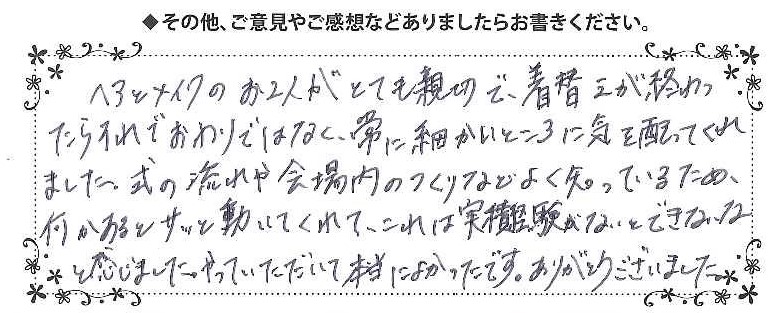 ◆その他、ご意見やご感想などありましたらお書きください。
ヘアとメイクのお2人がとても親切で、着替えが終わっ
たらそれでおわりではなく、常に細かいところに気を配ってくれ
ました。式の流れや会場内のつくりなどよく知っているため、
何かあるとサッと動いてくれて、これは実積経験がないとできないな
と感じました。やっていただいて本当によかったです。ありがとうございました。